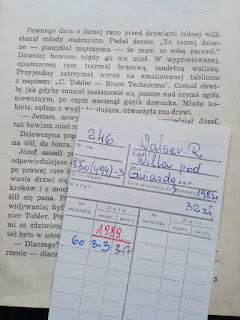 Pewnego dnia o ósmej rano przed drzwiami ładnej willi
stanął młody mężczyzna. Padał deszcz. „To raczej dziw-
ne — pomyślał mężczyzna — że mam ze sobą parasol."
Dawniej bowiem nigdy go nie miał. W wyprostowanej,
opuszczonej ręce trzymał brązową, tandetną walizkę.
Przyjezdny zatrzymał wzrok na emaliowanej tabliczce
z napisem: „C. Tobler — Biuro Techniczne". Czekał chwi-
lę, jak gdyby musiał zastanowić się jeszcze nad czymś zgoła
nieważnym, po czym nacisnął guzik dzwonka. Młoda ko-
bieta, służąca, otworzyła mu drzwi.
— Jestem
Józef,
tak bowiem miał
Dziewczyna
na dół, do biura.
Józef zszedł
odpowiedniejsze
po prawej ręce
drzwi
kroków i z
pana.
nier Tobler.
ze zdziwieniem
też było w istocie
— Dlaczego?
rzenie — dlaczego
246
Walser R.
Willa pod
Gwiazdą...
830(494)-3
1985r.
32 zł
Nr
czytelnika
Data
Nr
czytelnika
Data
1989
60 3-3
5